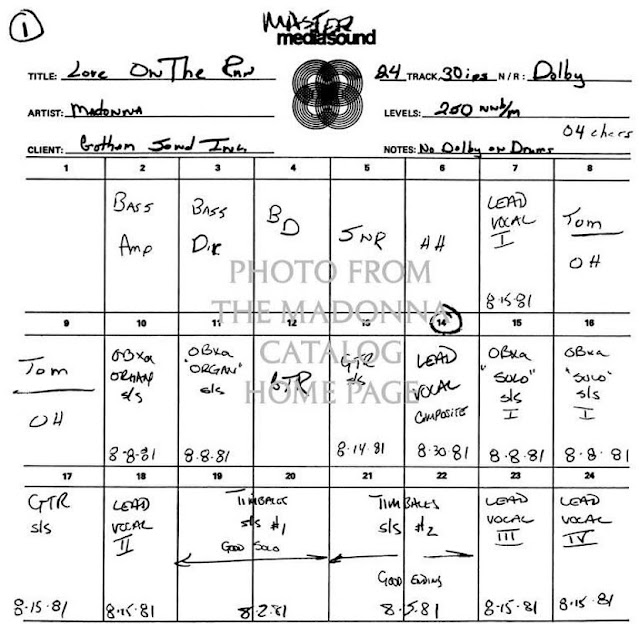 1
MASTER
mediasound
TITLE: Love On The Run
24 TRACK, 30 ips N/R: Dolby
ARTIST: Madonna
LEVELS: 250 nnb/m
CLIENT: Gotham Sound Inc.
NOTES: No Dolby on Drums
1 2 3 4 5 6 7 8
BASS Amp
BASS Dir
BD
SNR
HH
LEAD VOCAL I
8·15·81
Tom OH
PHOTO FROM
THE MADONNA
CATALOG
HOME PAGE
9 10 11 12 13 14 15 16
Tom OH
OBxa ORGAN s/s
8-8-81
OBxa "ORGAN" s/s
8·8·81
GTR
GTR s/s
8·14·81
LEAD VOCAL COMPOSITE
8·30·81
OBxa "SOLO" s/s I
8·8·81
OBxa "SOLO" s/s I
8·8·81
17 18 19 20 21 22 23 24
GTR s/s
8-15-81
LEAD VOCAL II
8·15·81
TIMBALES s/s #1
GOOD SOLO
8·2·81
TIMBALES s/s #2
GOOD ENDING
8·5·81
LEAD VOCAL III
8·15·81
LEAD VOCAL IV
8·15·81